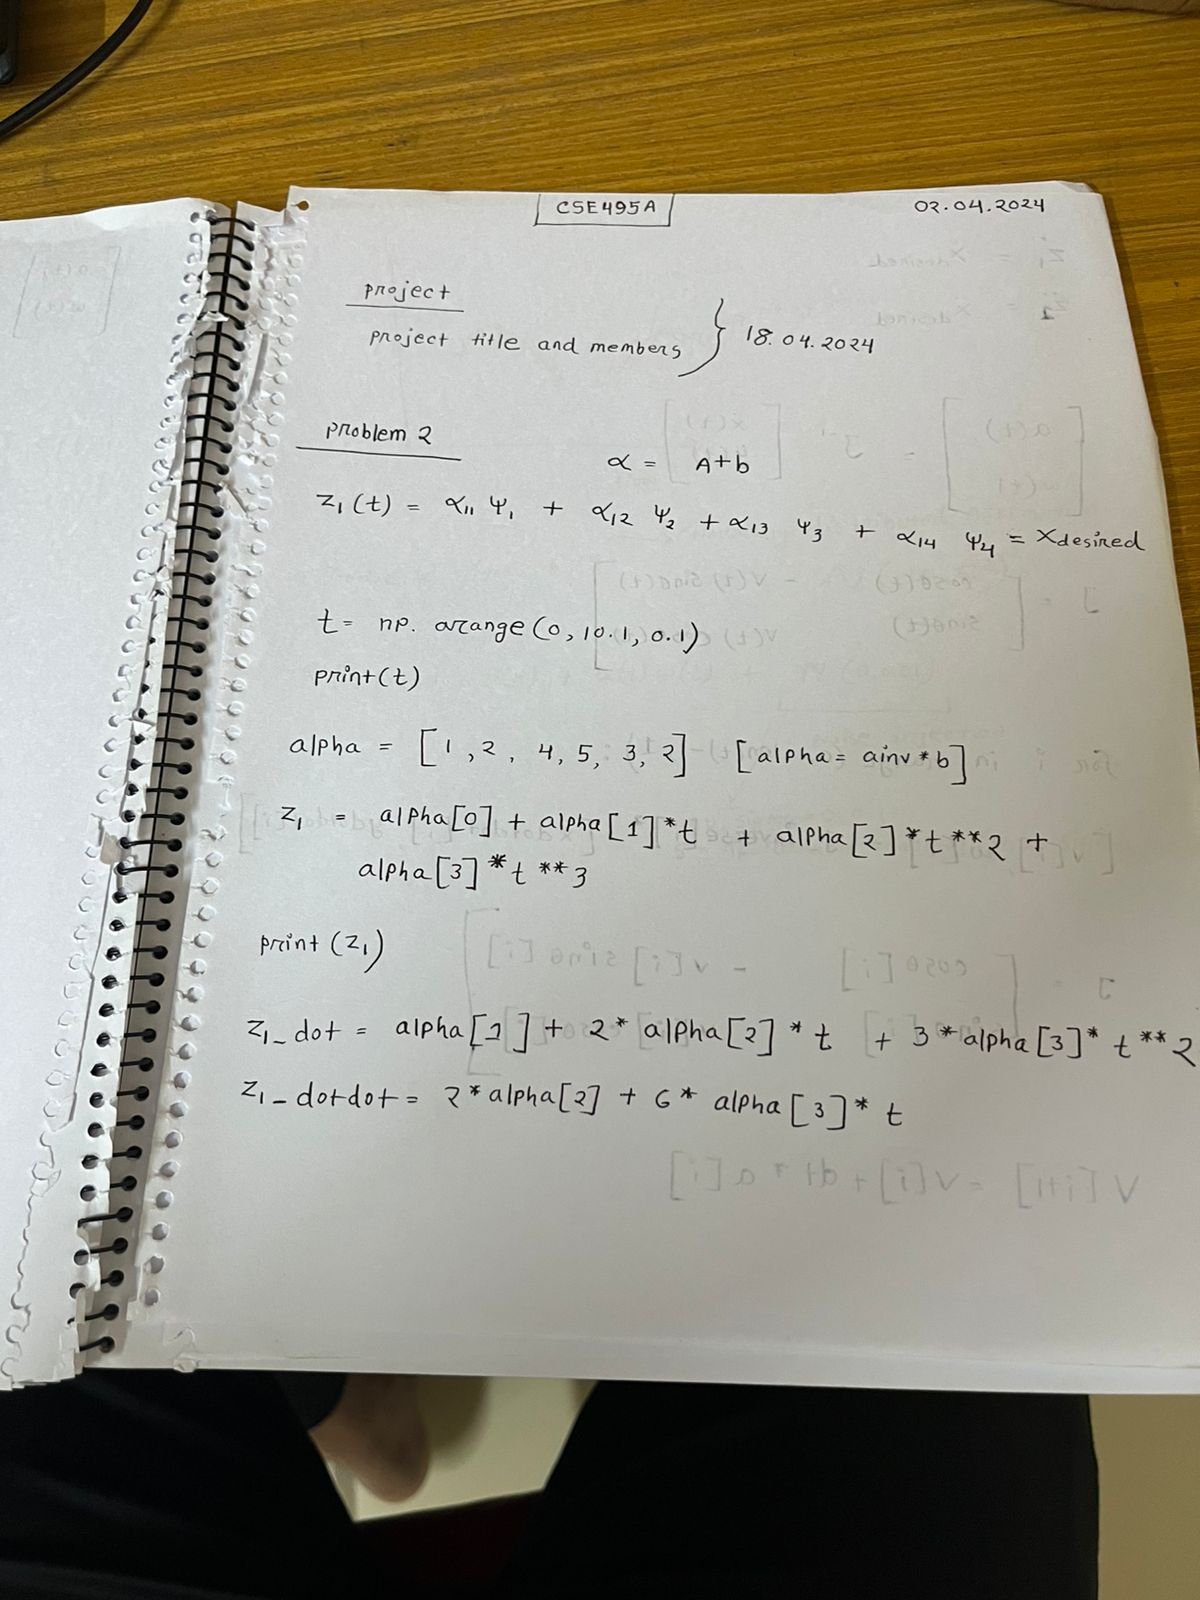 CSE495A
02.04.2024
project
project title and members } 18.04.2024
problem 2
α = A+b
z₁(t) = α₁₁ ψ₁ + α₁₂ ψ₂ + α₁₃ ψ₃ + α₁₄ ψ₄ = Xdesired
t = np. arange(0, 10.1, 0.1)
print(t)
alpha = [1, 2, 4, 5, 3, 2] [alpha = ainv*b]
z₁ = alpha[0] + alpha[1]*t + alpha[2]*t**2 +
alpha[3]*t**3
print(z₁)
z₁_dot = alpha[1] + 2* alpha[2] * t + 3*alpha[3]* t**2
z₁_dotdot = 2*alpha[2] + 6* alpha[3]* t